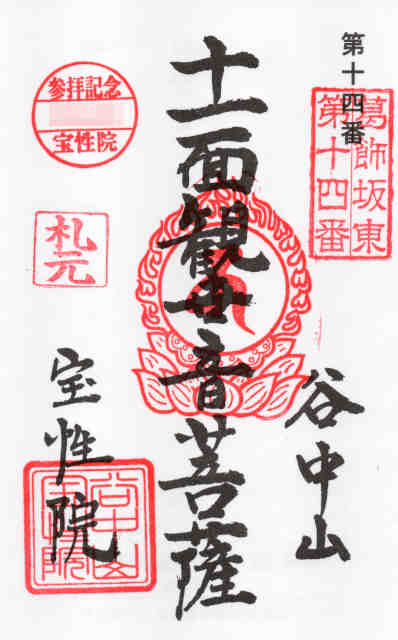 第十四番
葛飾坂東
第十四番
谷中山
十一面観世音菩薩
参拝記念
宝性院
札元
宝性院
谷中山
宝性院